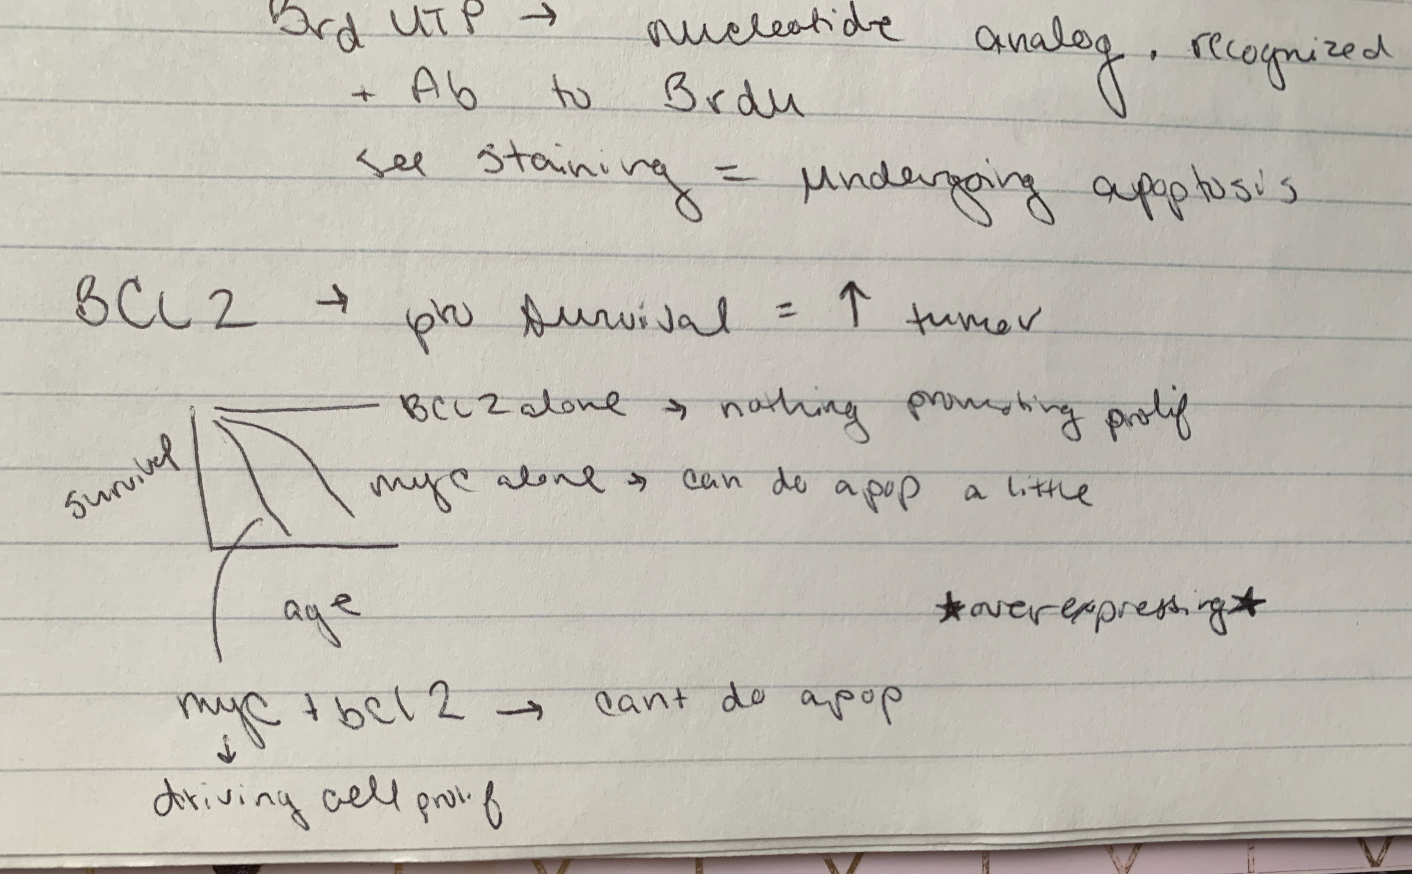 Brd UTP → nucleotide analog. recognized
+ Ab to Brdu
see staining = undergoing apoptosis
BCL2 → pro survival = ↑ tumor
BCL2 alone → nothing promoting prolif
survival
myc alone → can do apop a little
age
★overexpressing★
myc + bcl2 → cant do apop
↓
driving cell prolif